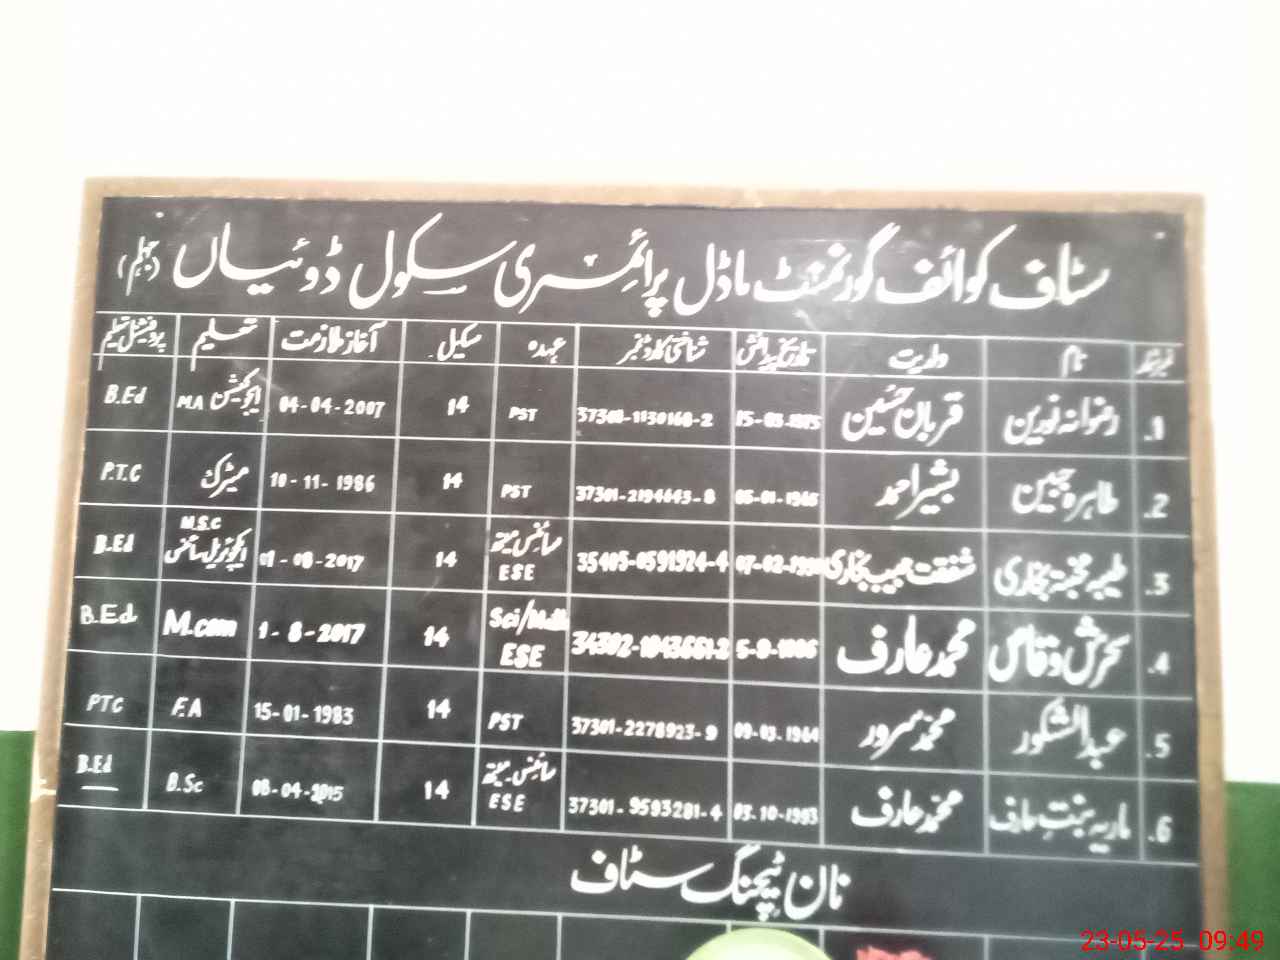 سٹاف کوائف گورنمنٹ ماڈل پرائمری سکول ڈوئیاں (جہلم)
نمبرشمار نام ولدیت تاریخ پیدائش شناختی کارڈ نمبر عہدہ سکیل آغاز ملازمت تعلیم پروفیشنل تعلیم
1. رضوانہ نورین قربان حسین PST 14 04-04-2007 M.A ایجوکیشن B.Ed
2. طاہرہ جبین بشیر احمد 37301-2194643-8 PST 14 10-11-1986 میٹرک P.T.C
3. شفقت حبیب بخاری 35405-0591924-4 سائنس میتھ ESE 14 01-08-2017 M.S.C B.Ed
4. سحرش وقاص محمد عارف Sci/Math ESE 14 1-8-2017 M.com B.Ed
5. عبدالشکور محمد سرور 09-03-1964 37301-2278923-9 PST 14 15-01-1983 F.A PTC
6. ماریہ بنت عارف محمد عارف 03-10-1993 37301-9593281-4 سائنس میتھ ESE 14 08-04-2015 B.Sc B.Ed
نان ٹیچنگ سٹاف
23-05-25 09:49